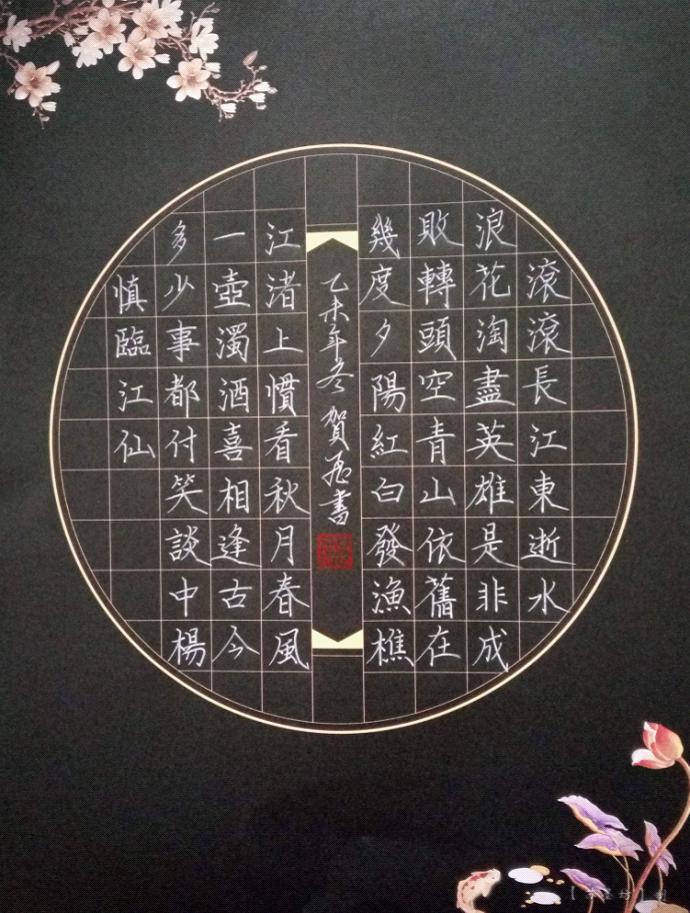 滾滾長江東逝水
浪花淘盡英雄是非成
敗轉頭空青山依舊在
幾度夕陽紅白發漁樵
乙未年冬賀書
江渚上慣看秋月春風
一壺濁酒喜相逢古今
多少事都付笑談中楊
慎臨江仙